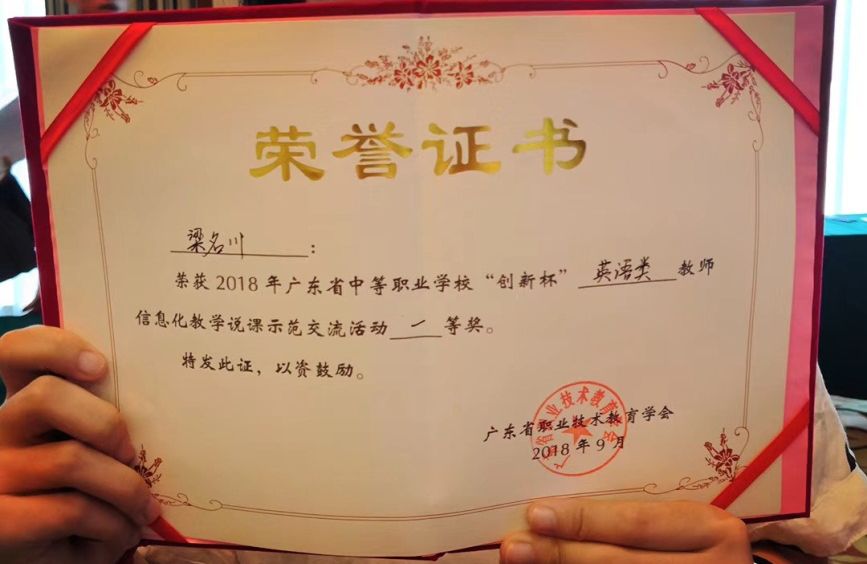 荣誉证书
梁名川：
荣获2018年广东省中等职业学校“创新杯”英语类教师
信息化教学说课示范交流活动一等奖。
特发此证，以资鼓励。
广东省职业技术教育学会
2018年9月